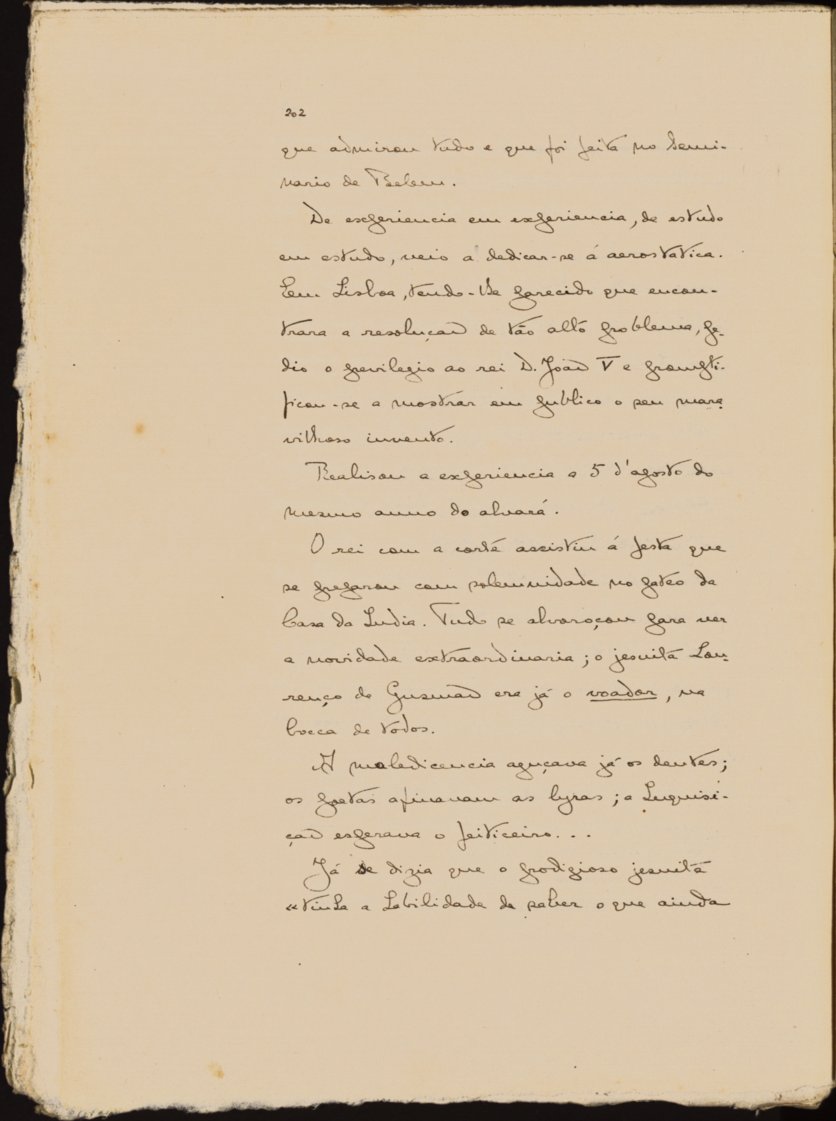 202
que admirou tudo e que foi feita no Semi-
nario de Belem.
De experiencia em experiencia, de estudo
em estudo, veio a dedicar-se á aerostatica.
Em Lisboa, tendo-lhe parecido que encon-
trara a resolução de tão alto problema, pe-
dio o previlegio ao rei D. João V e promp­ti-
ficou-se a mostrar em publico o seu mara-
vilhoso invento.
Realisou a experiencia a 5 d'agosto do
mesmo anno do alvará.
O rei com a corte assistiu á festa que
se preparou com solemnidade no pateo da
Casa da India. Tudo se alvoroçou para ver
a novidade extraordinaria; o jesuita Lou-
renço de Gusmão era já o voador, na
bocca de todos.
A maledicencia aguçava já os dentes;
os poetas afinavam as lyras; a Inquisi-
ção esperava o feiticeiro...
Já se dizia que o prodigioso jesuita
«tinha a habilidade de saber o que ainda